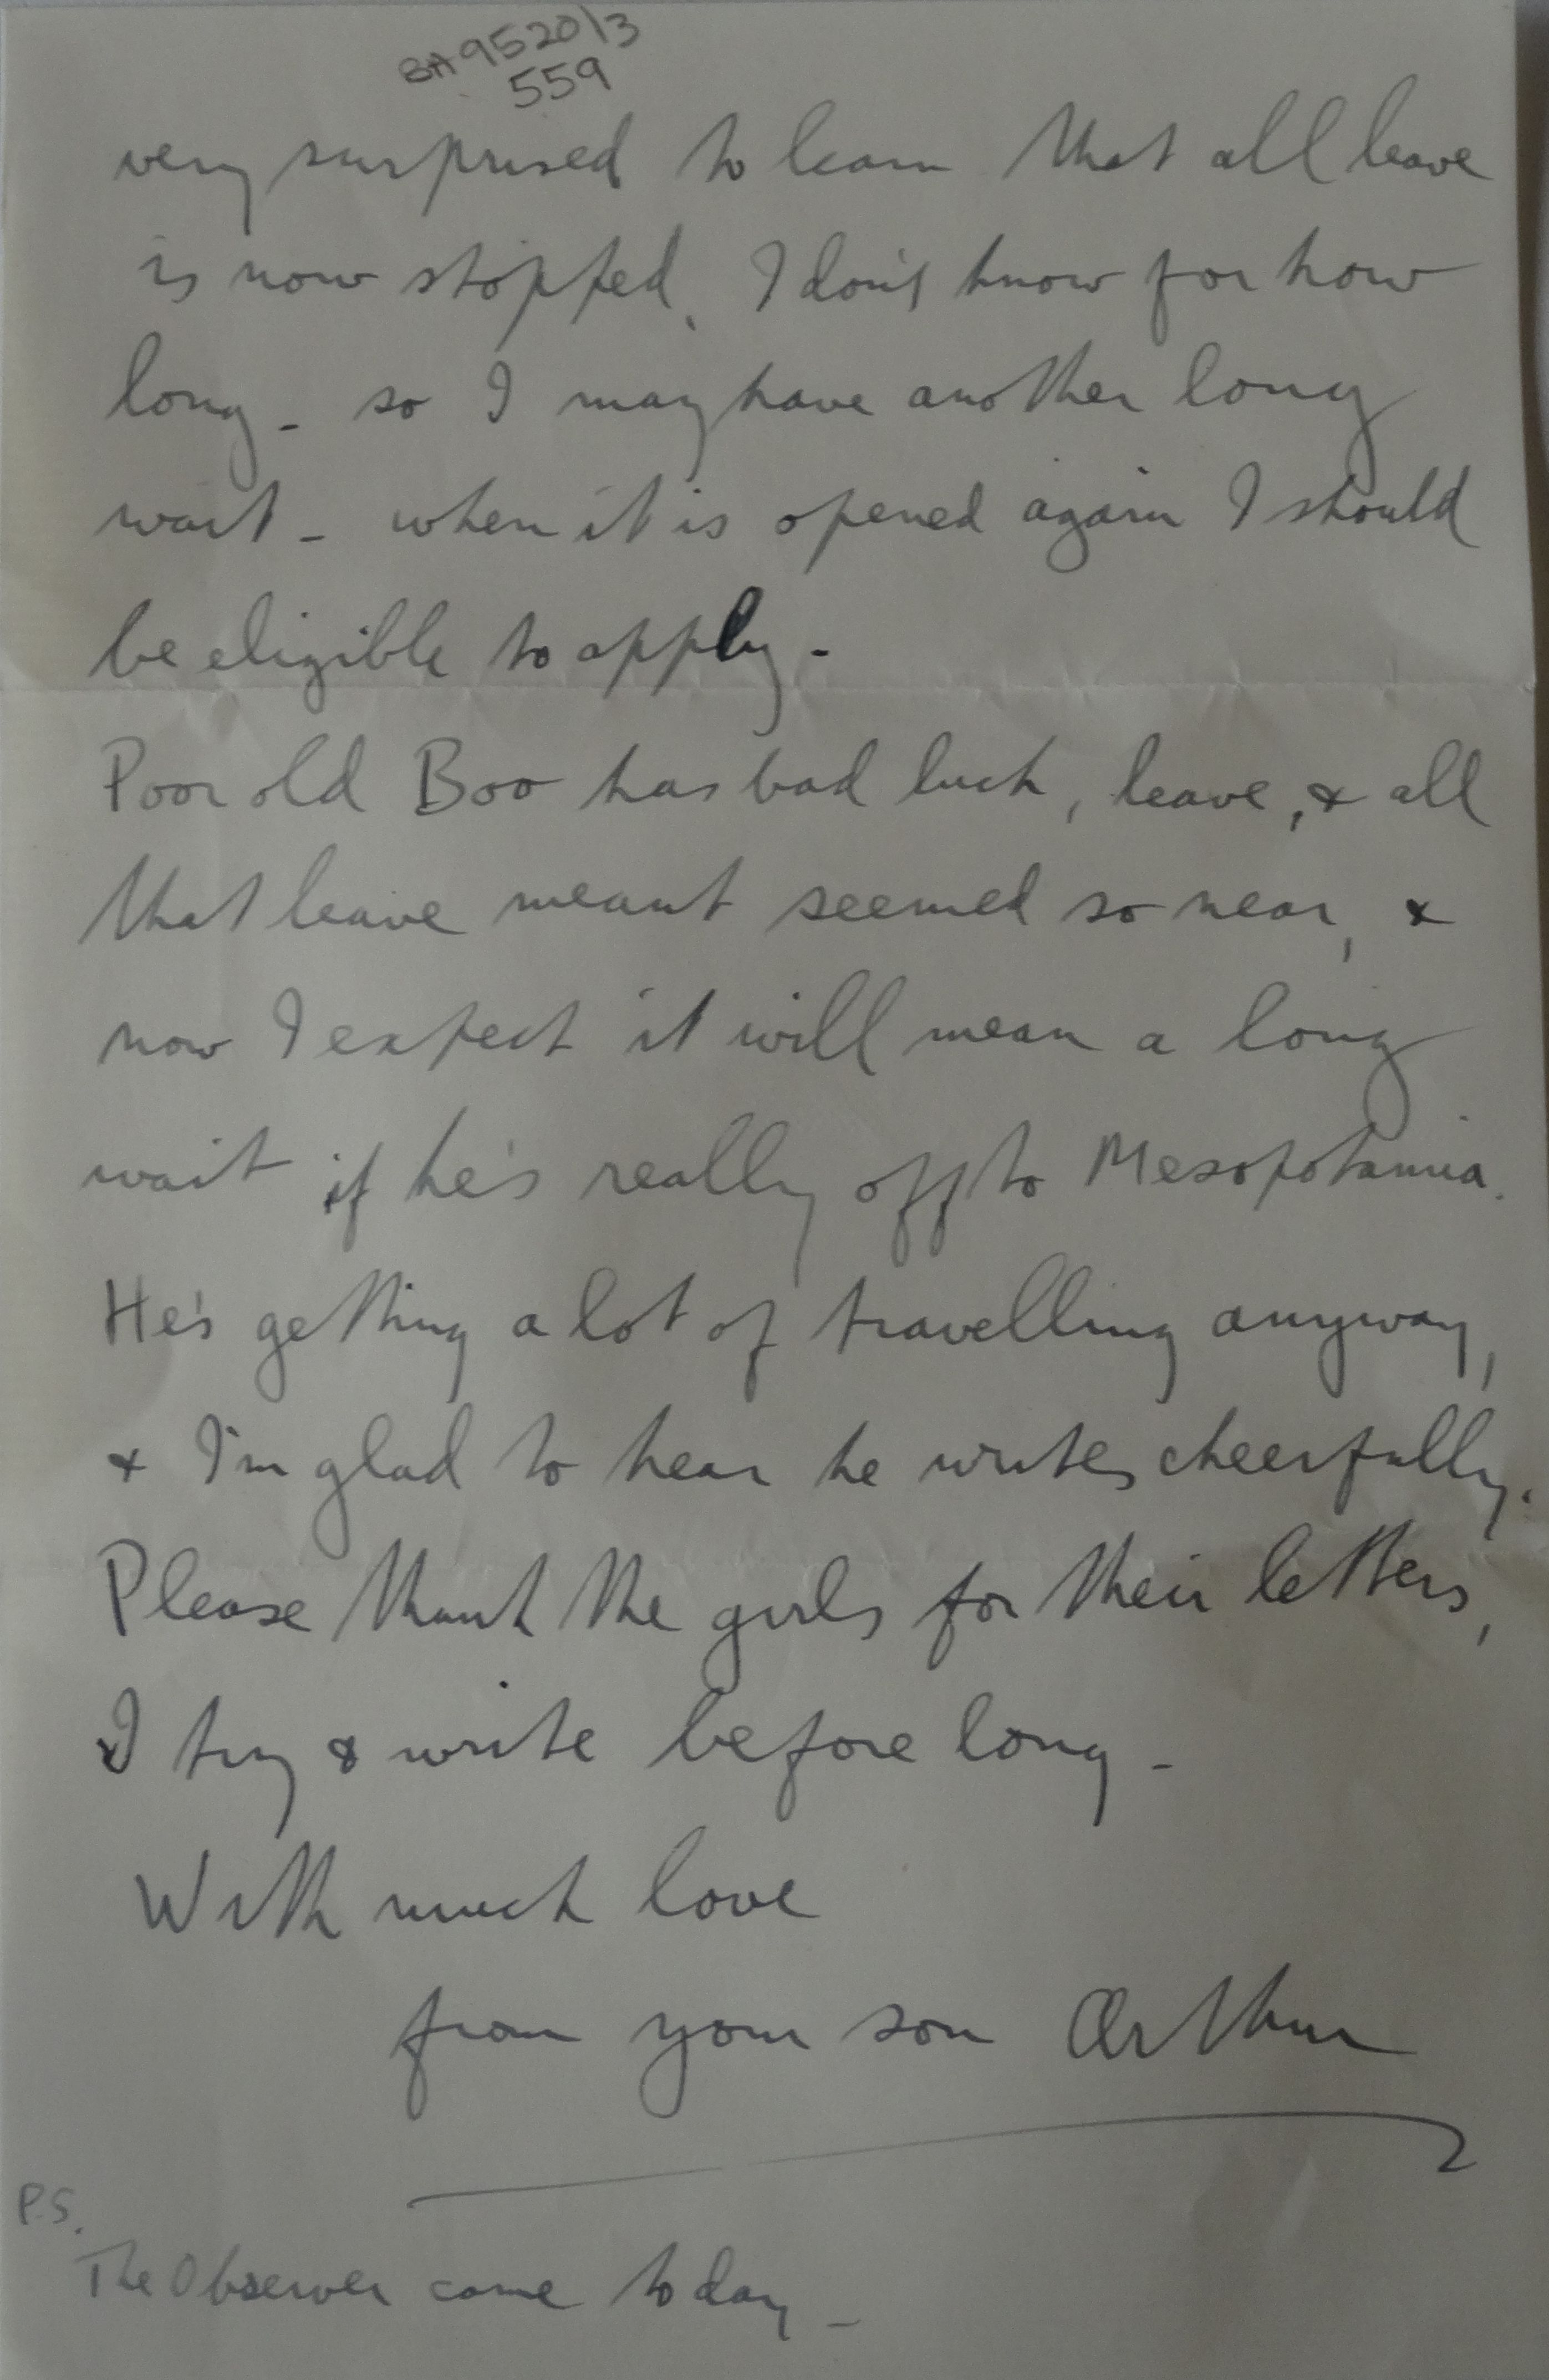 BA9520/3
559
very surprised to learn that all leave
is now stopped, I don't know for how
long - so I may have another long
wait - when it is opened again I should
be eligible to apply -
Poor old Boo has bad luck, leave, & all
that leave meant seemed so near, &
now I expect it will mean a long
wait if he's really off to Mesopotamia.
He's getting a lot of travelling anyway,
& I'm glad to hear he writes cheerfully.
Please thank the girls for their letters,
I try & write before long -
With much love
from your son Arthur
P.S.
The Observer came today -